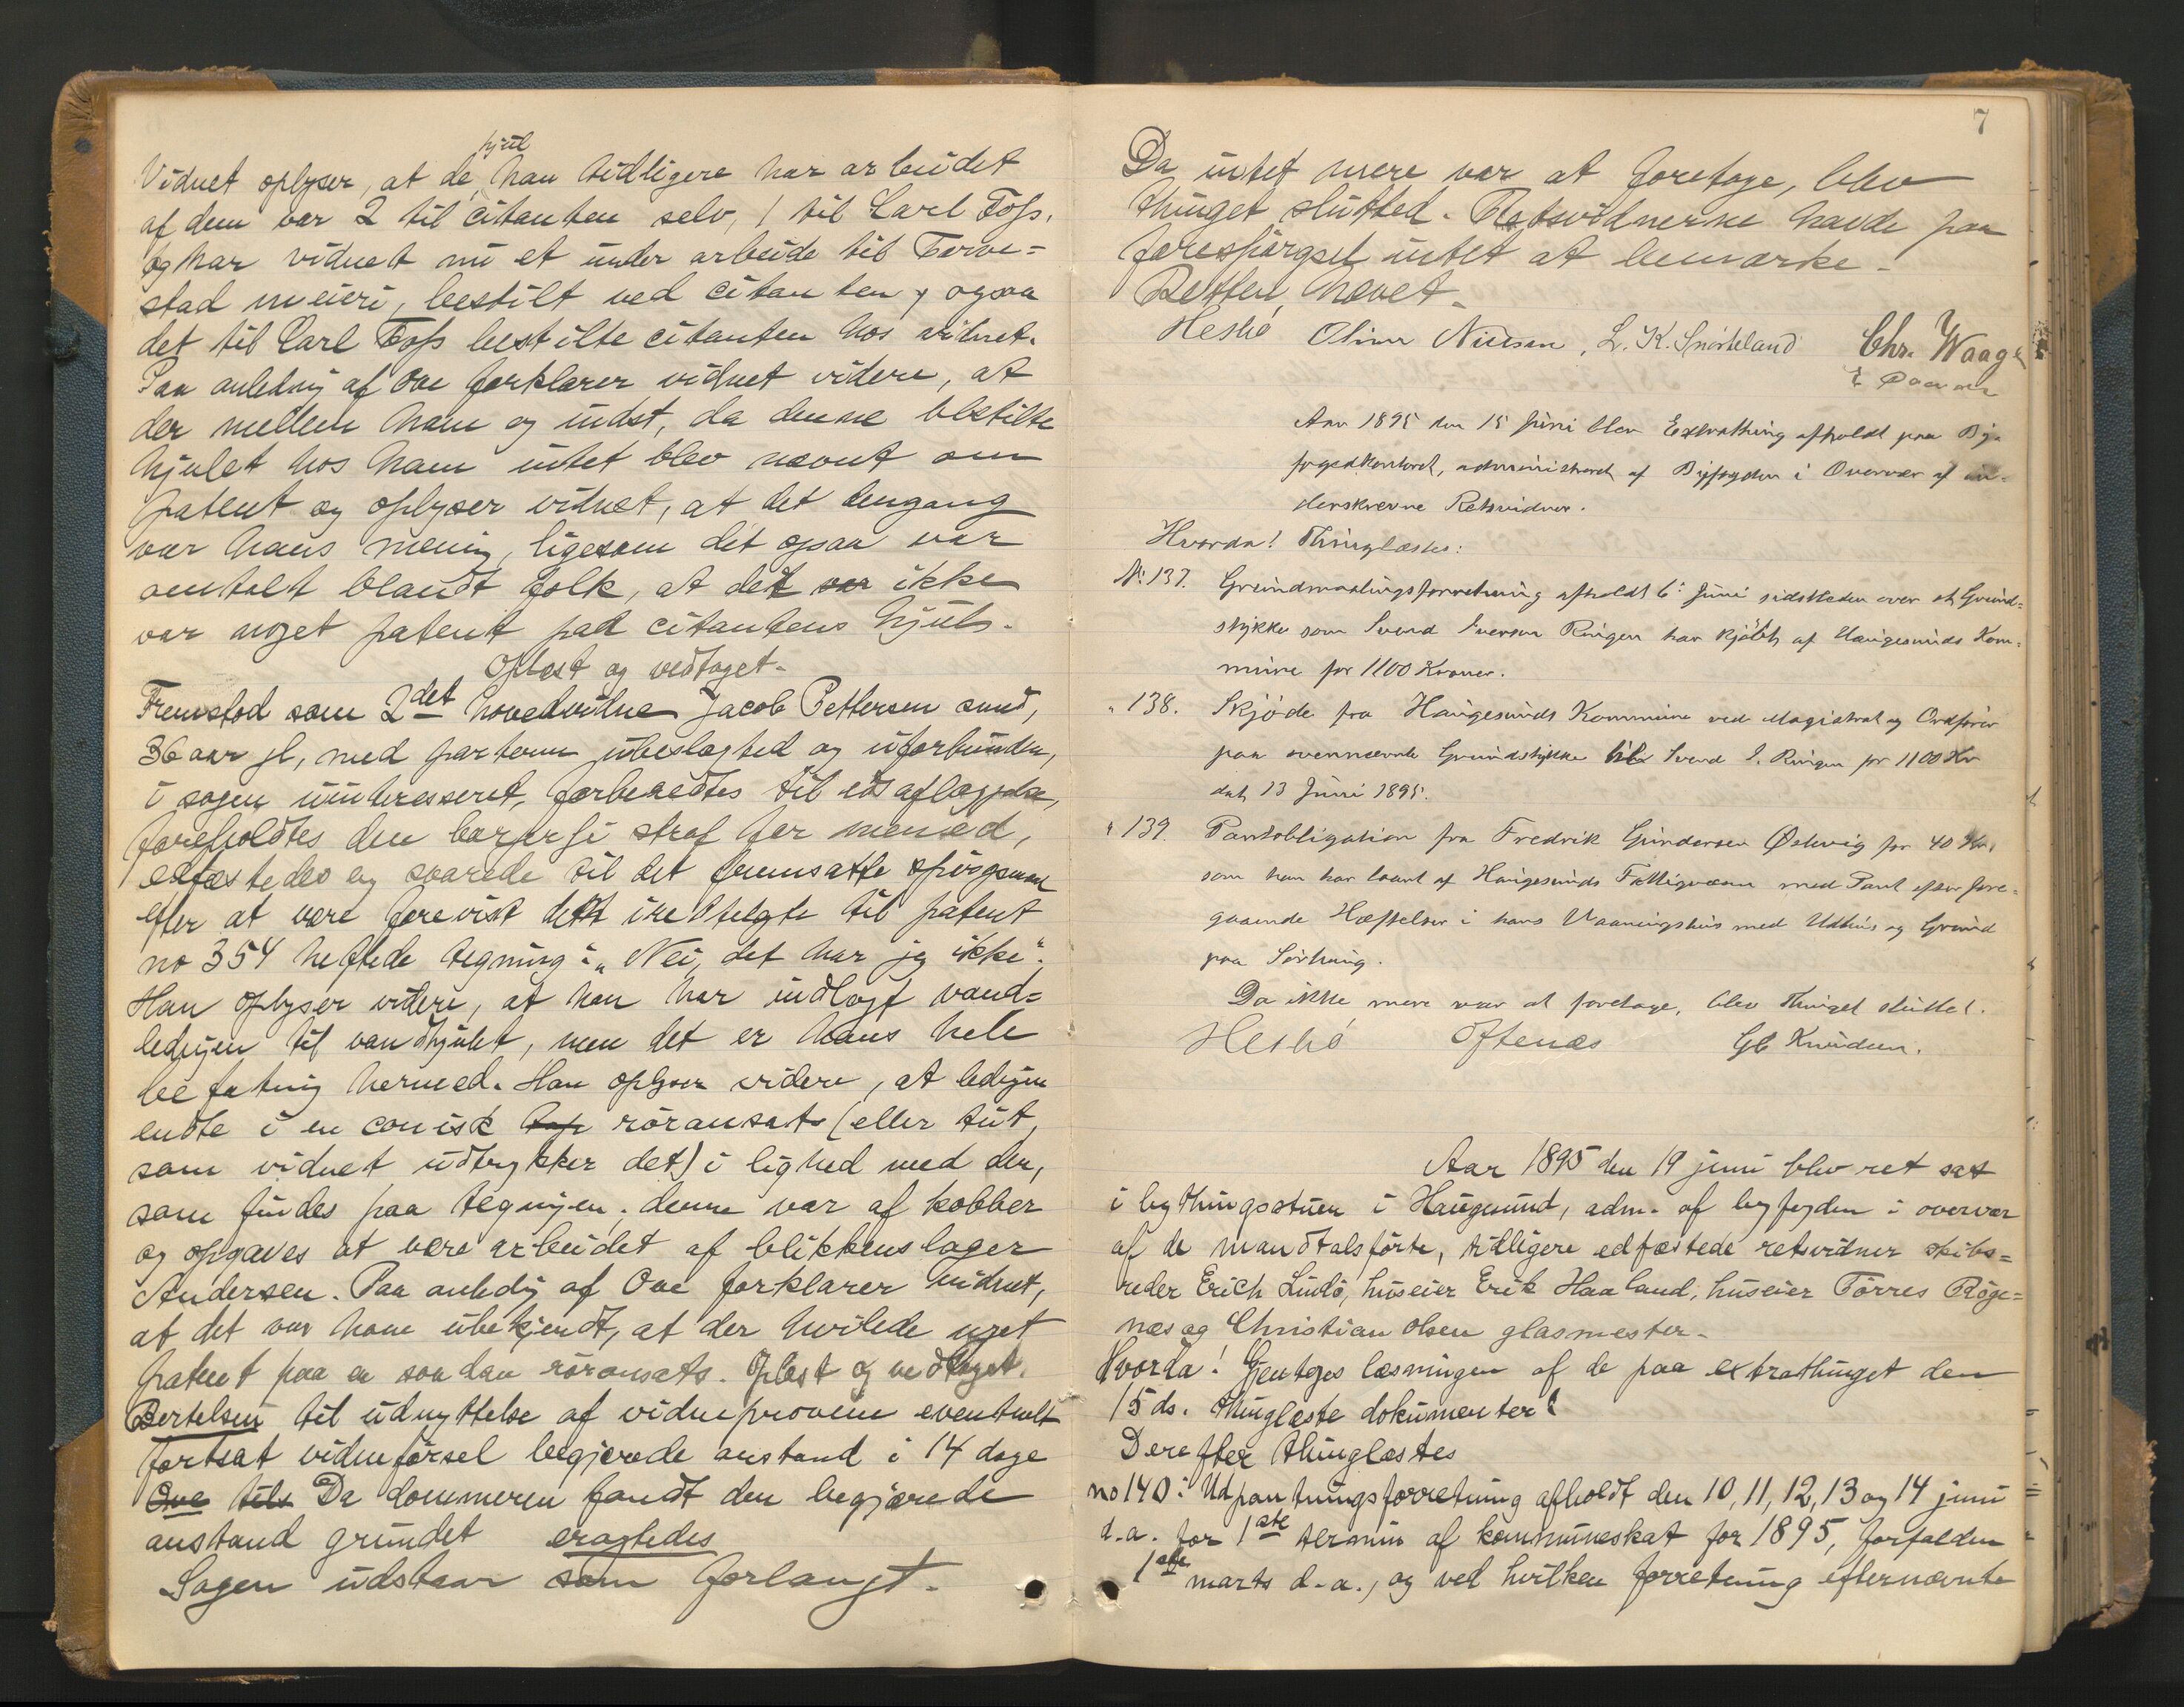 hjul
Vidnet oplyser, at de han tidligere har arbeidet
af dem var 2 til citanten selv, 1 til Carl Foss,
og har vidnet nu et under arbeide til Førre=
stad meieri, bestilt ved citanten, ogsaa
det til Carl Foss bestilte citanten hos vidnet.
Paa anledng af Ove forklarer vidnet videre, at
der mellem ham og indst, da denne bestilte
hjulet hos ham intet blev nævnt om
patent og oplyser vidnet, at det dengang
var hans mening, ligesom det ogsaa var
omtalt blandt folk, at det var ikke
var noget patent paa citantens hjul.
Oplæst og vedtaget.
Fremstod som 2det hovedvidne Jacob Pettersen sund,
36 aar gl, med parterne ubeslægted og uforbunden,
i sagen uinteresseret, forberedtes til edsaflæggelse,
foreholdtes den borgerli straf for mened,
edfæstedes og svarede til det fremsatte spørgsmaal
efter at være forevist dett irettelagte til patent
no 354 heftede tegning: "Nei, det har jeg ikke".
Han oplyser videre, at han har indlagt vand=
ledngen til vandhjulet, men det er hans hele
befatnig hermed. Han oplyser videre, at ledngen
endte i en conisk røransats (eller tut,
som vidnet udtrykker det) i lighed med den,
som findes paa tegningen; denne var af kobber
og opgaves at være arbeidet af blikkenslager
Andersen. Paa anledg af Ove forklarer vidnet,
at det var ham ubekjendt, at der hvilede noget
patent paa en saadan røransats. Oplæst og vedtaget.
Bertelsen til udnyttelse af vidneprovene eventuelt
fortsat vidneførsel begjærede anstand i 14 dage
Ove Da dommeren fandt den begjærede
anstand grundet eragtedes
Sagen udstaar som forlangt.
7
Da intet mere var at foretage, blev
thinget slutted. Retsvidnerne havde paa
forespørgsel intet at bemærke.
Retten hævet.
Heshö Oliver Nilsen, L. K. Snörteland Chr. Waage
Aar 1895 den 15 Juni blev Extrathing afholdt paa By=
fogedkontoret, administreret af Byfogden i Overvær af un=
derskrevne Retsvidner.
Hvorda! Thinglæstes:
No 137. Grundmaalingsforretning afholdt 6: Juni sidstleden over et Grund=
stykke som Svend Iversen Ringen har kjøbt af Haugesunds Kom=
mune for 1100 Kroner.
" 138. Skjöde fra Haugesunds Kommune ved Magistrat og Ordförer
paa ovennævnte Grundstykke til Svend I. Ringen for 1100 Kr
dat 13 Juni 1895.
" 139. Pantobligation fra Fredrik Gundersen Østevig for 40 Kr,
som han har laant af Haugesunds Fattigvæsen med Pant efter fore=
gaaende Hæftelser i hans Vaaningshus med Udhus og Grund
paa Sörhaug.
Da ikke mere var at foretage, blev Thinget sluttet.
Heshö Oftenæs Gb Knudsen.
Aar 1895 den 19 juni blev ret sat
i bythingsstuen i Haugesund, adm. af byfogden i overvær
af de mandtalsførte, tidligere edfæstede retsvidner skibs=
reder Erich Lindø, huseier Erik Haaland, huseier Tørres Røge=
næs og Christian Olsen glasmester.
Hvorda! Gjentoges læsningen af de paa extrathinget den
15 ds. thinglæste dokumenter!
Derefter thinglæstes
no 140: Udpantningsforretning afholdt den 10, 11, 12, 13 og 14 juni
d.a. for 1ste termin af kommuneskat for 1895, forfalden
1ste marts d.a., og ved hvilken forretning efternævnte